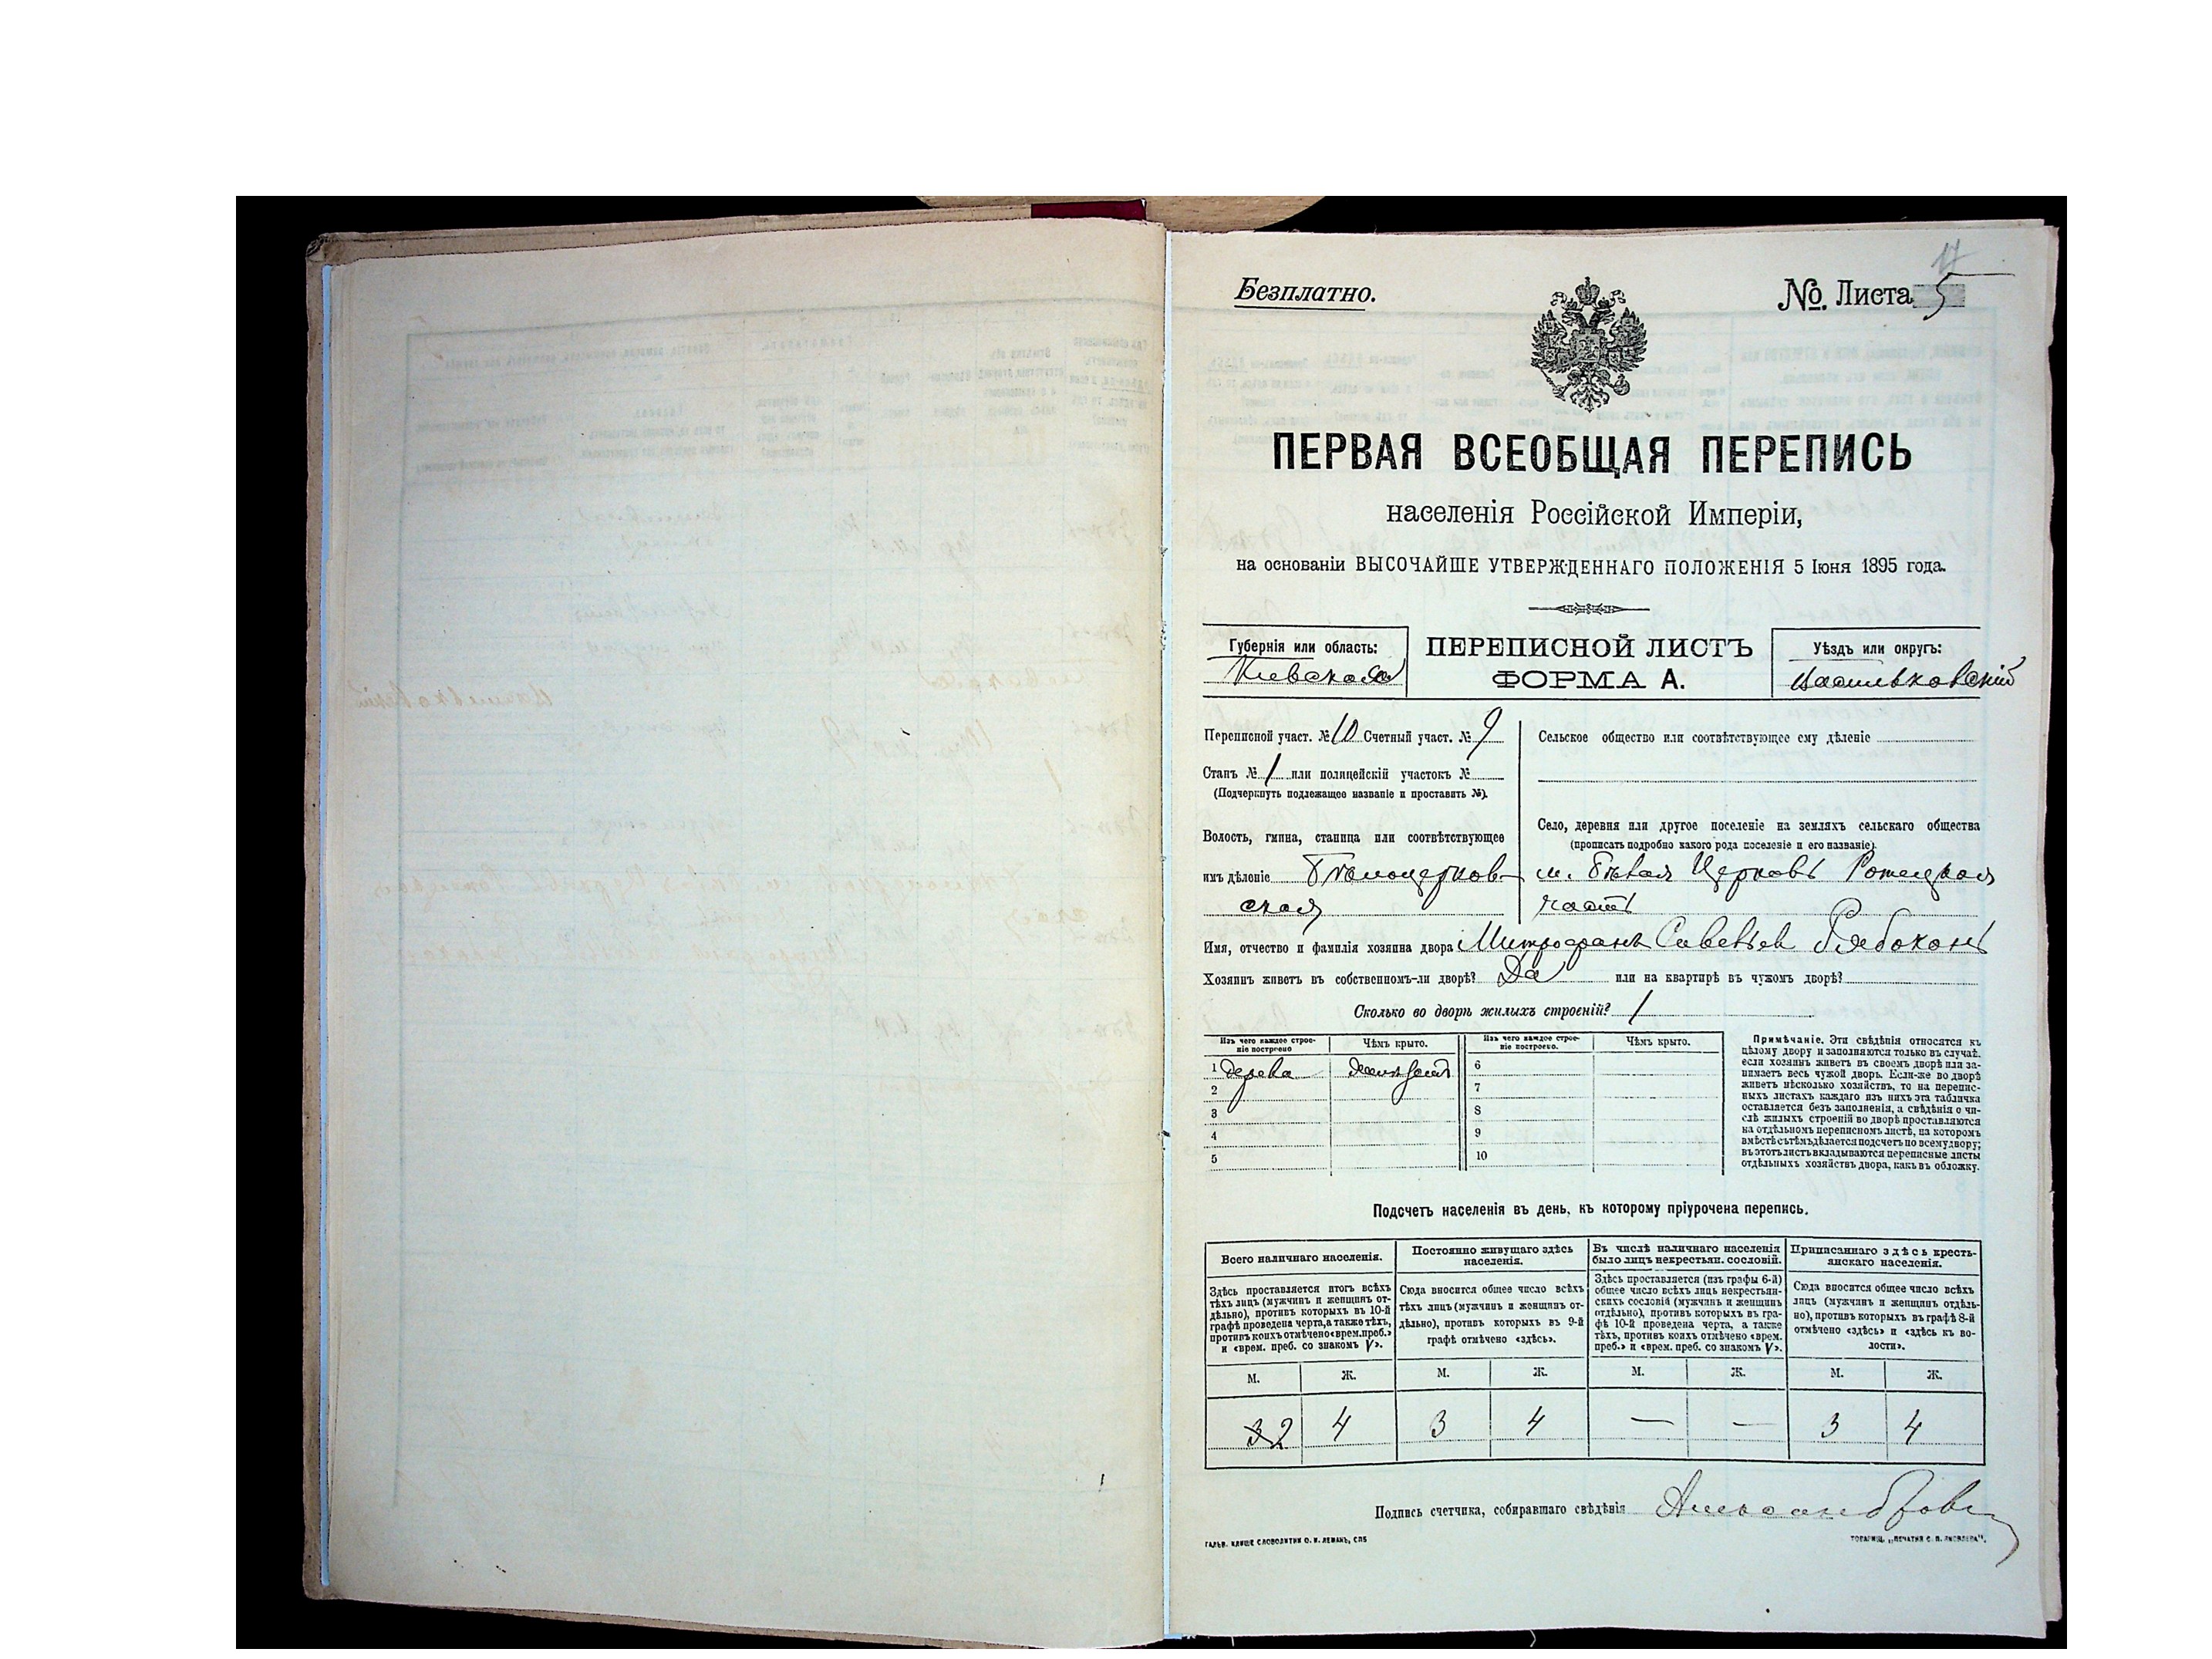 17
Безплатно.
№. Листа 5
ПЕРВАЯ ВСЕОБЩАЯ ПЕРЕПИСЬ
населенія Россійской Имперіи,
на основаніи ВЫСОЧАЙШЕ УТВЕРЖДЕННАГО ПОЛОЖЕНІЯ 5 Іюня 1895 года.
Губернія или область:
Кіевская
ПЕРЕПИСНОЙ ЛИСТЪ
ФОРМА А.
Уѣздъ или округъ:
Васильковскій
Переписной участ. № 10 Счетный участ. № 9
Станъ № 1 или полицейскій участокъ №
(Подчеркнуть подлежащее названіе и проставить №).
Волость, гмина, станица или соотвѣтствующее
имъ дѣленіе Бѣлоцерков-
ская
Сельское общество или соотвѣтствующее ему дѣленіе
Село, деревня или другое поселеніе на земляхъ сельскаго общества
(прописать подробно какого рода поселеніе и его названіе).
м. Бѣлая Церковь
часть
Имя, отчество и фамилія хозяина двора Митрофанъ Савельев Рябоконь
Хозяинъ живетъ въ собственномъ-ли дворѣ? Да или на квартирѣ въ чужомъ дворѣ?
Сколько во дворѣ жилыхъ строеній? 1
Изъ чего каждое строе-
ніе построено
Чѣмъ крыто.
Изъ чего каждое строе-
ніе построено.
Чѣмъ крыто.
1 дерева
2
3
4
5
6
7
8
9
10
Примѣчаніе. Эти свѣдѣнія относятся къ
цѣлому двору и заполняются только въ случаѣ,
если хозяинъ живетъ въ своемъ дворѣ или за-
нимаетъ весь чужой дворъ. Если-же во дворѣ
живетъ нѣсколько хозяйствъ, то на перепис-
ныхъ листахъ каждаго изъ нихъ эта табличка
оставляется безъ заполненія, а свѣдѣнія о чи-
слѣ жилыхъ строеній во дворѣ проставляются
на отдѣльномъ переписномъ листѣ, на которомъ
вмѣстѣ съ тѣмъ дѣлается подсчетъ по всему двору;
въ этотъ листъ вкладываются переписные листы
отдѣльныхъ хозяйствъ двора, какъ въ обложку.
Подсчетъ населенія въ день, къ которому пріурочена перепись.
Всего наличнаго населенія.
Здѣсь проставляется итогъ всѣхъ
тѣхъ лицъ (мужчинъ и женщинъ от-
дѣльно), противъ которыхъ въ 10-й
графѣ проведена черта, а также тѣхъ,
противъ коихъ отмѣчено «врем. преб.»
и «врем. преб. со знакомъ V».
М. Ж.
3 2 4
Постоянно живущаго здѣсь
населенія.
Сюда вносится общее число всѣхъ
тѣхъ лицъ (мужчинъ и женщинъ от-
дѣльно), противъ которыхъ въ 9-й
графѣ отмѣчено «здѣсь».
М. Ж.
3 4
Въ числѣ наличнаго населенія
было лицъ некрестьян. сословій.
Здѣсь проставляется (изъ графы 6-й)
общее число всѣхъ лицъ некрестьян-
скихъ сословій (мужчинъ и женщинъ
отдѣльно), противъ которыхъ въ гра-
фѣ 10-й проведена черта, а также
тѣхъ, противъ коихъ отмѣчено «врем.
преб.» и «врем. преб. со знакомъ V».
М. Ж.
— —
Приписаннаго здѣсь кресть-
янскаго населенія.
Сюда вносится общее число всѣхъ
лицъ (мужчинъ и женщинъ отдѣль-
но), противъ которыхъ въ графѣ 8-й
отмѣчено «здѣсь» и «здѣсь къ во-
лости».
М. Ж.
3 4
Подпись счетчика, собиравшаго свѣдѣнія
ГАЛЬВ. КЛИШЕ СЛОВОЛИТНИ О. И. ЛЕМАНЪ, СПБ
ТОВАРИЩ. „ПЕЧАТНЯ С. П. ЯКОВЛЕВА".